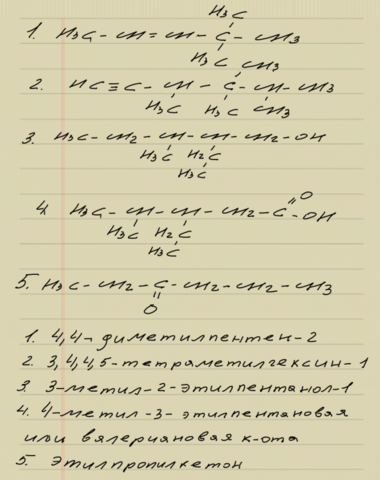 H₃C
1. H₃C - CH = CH - C - CH₃
H₃C
CH₃
2. HC ≡ C - CH - C - CH - CH₃
H₃C H₃C CH₃
3. H₃C - CH₂ - CH - CH - CH₂ - OH
H₃C H₂C
H₃C
O
4. H₃C - CH - CH - CH₂ - C - OH
H₃C H₂C
H₃C
5. H₃C - CH₂ - C - CH₂ - CH₂ - CH₃
O
1. 4,4-диметилпентен-2
2. 3,4,4,5-тетраметилгексин-1
3. 3-метил-2-этилпентанол-1
4. 4-метил-3-этилпентановая
или валериановая к-ота
5. этилпропилкетон